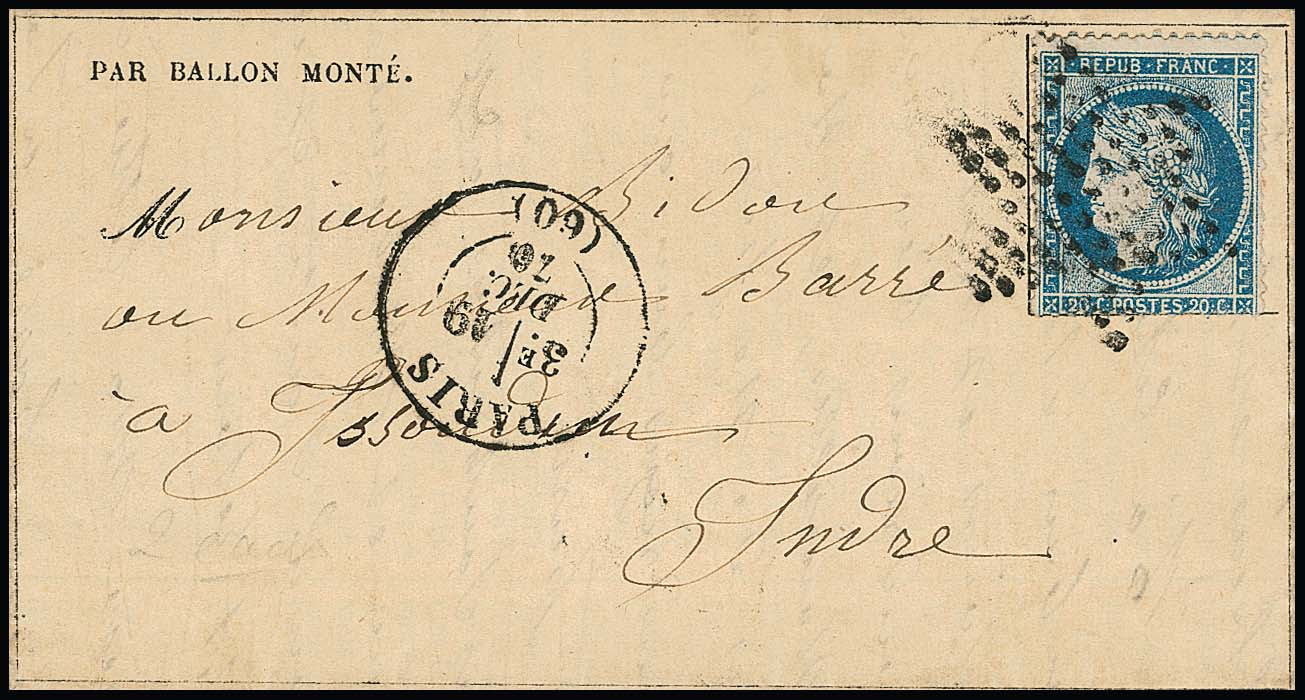 PAR BALLON MONTÉ.
REPUB·FRANC
20·C·POSTES·20·C
Monsieur Bidou
ou Monsieur Barré
à Issoudun
Indre
PARIS
3E
19
DÉC.
70
(60)